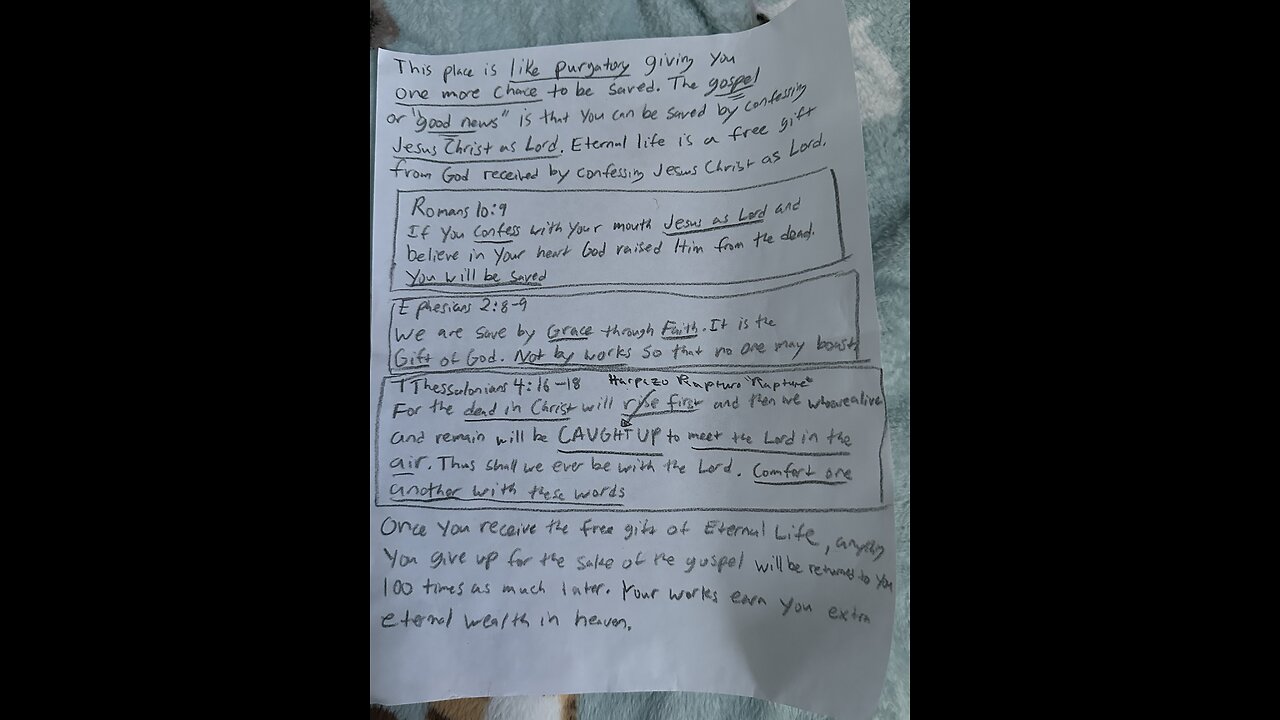 This place is like purgatory giving you
one more chace to be saved. The gospel
or "good news" is that you can be saved by confessing
Jesus Christ as Lord. Eternal life is a free gift
from God received by confessing Jesus Christ as Lord.
Romans 10:9
If you confess with your mouth Jesus as Lord and
believe in your heart God raised Him from the dead.
You will be saved
Ephesians 2:8-9
We are save by Grace through Faith. It is the
Gift of God. Not by works so that no one may boast
1 Thessalonians 4:16-18 Harpazo Rapturo "Rapture"
For the dead in Christ will rise first and then we who are alive
and remain will be CAUGHT UP to meet the Lord in the
air. Thus shall we ever be with the Lord. Comfort one
another with these words
Once you receive the free gift of Eternal Life, anything
you give up for the sake of the gospel will be returned to you
100 times as much later. Your works earn you extra
eternal wealth in heaven.